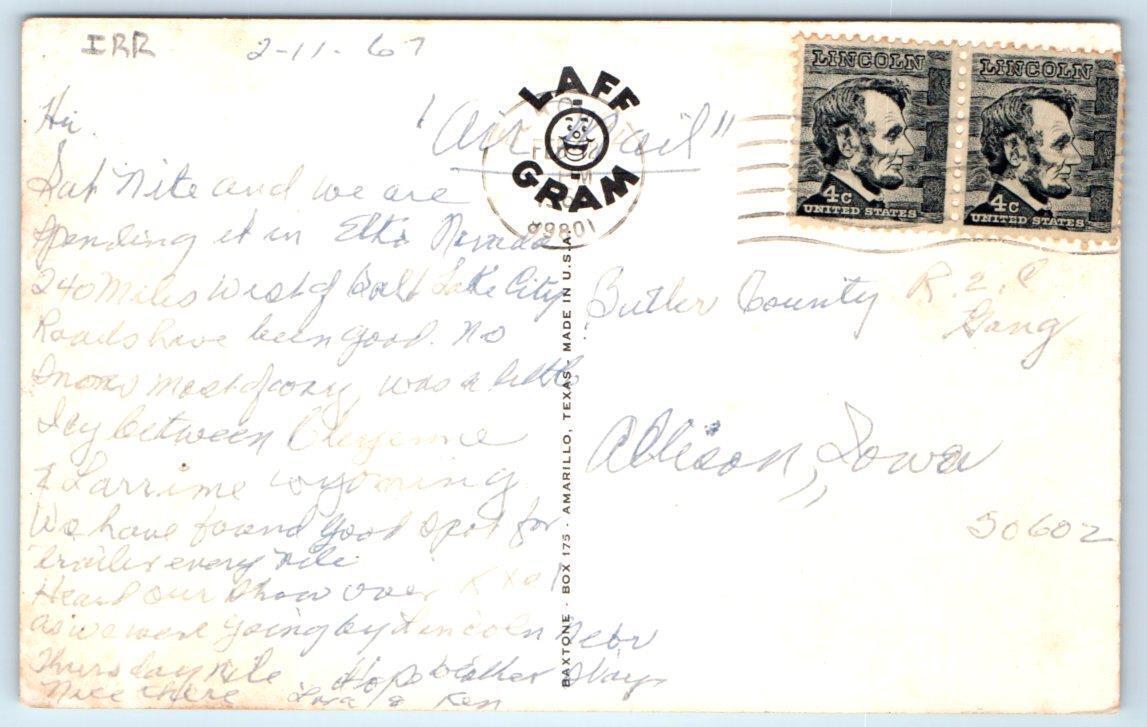 IRR 2-11-67
Hi.
Sat Nite and we are
spending it in Elko Nevada
240 Miles West of Salt Lake City
Roads have been good. No
Snow most of way, was a little
Icy between Cheyenne
& Larrime Wyoming
We have found good spot for
trailer every nite
Heard our show over
as we were going by Lincoln Nebr
Thursday Nite Hope weather stays
Nice there & Ken
"Air Mail"
LAFF
GRAM
89801
LINCOLN
4c
UNITED STATES
LINCOLN
4c
UNITED STATES
BAXTONE - BOX 175 - AMARILLO, TEXAS, MADE IN U.S.A.
Butler County R.E.C
Gang
Allison, Iowa
50602